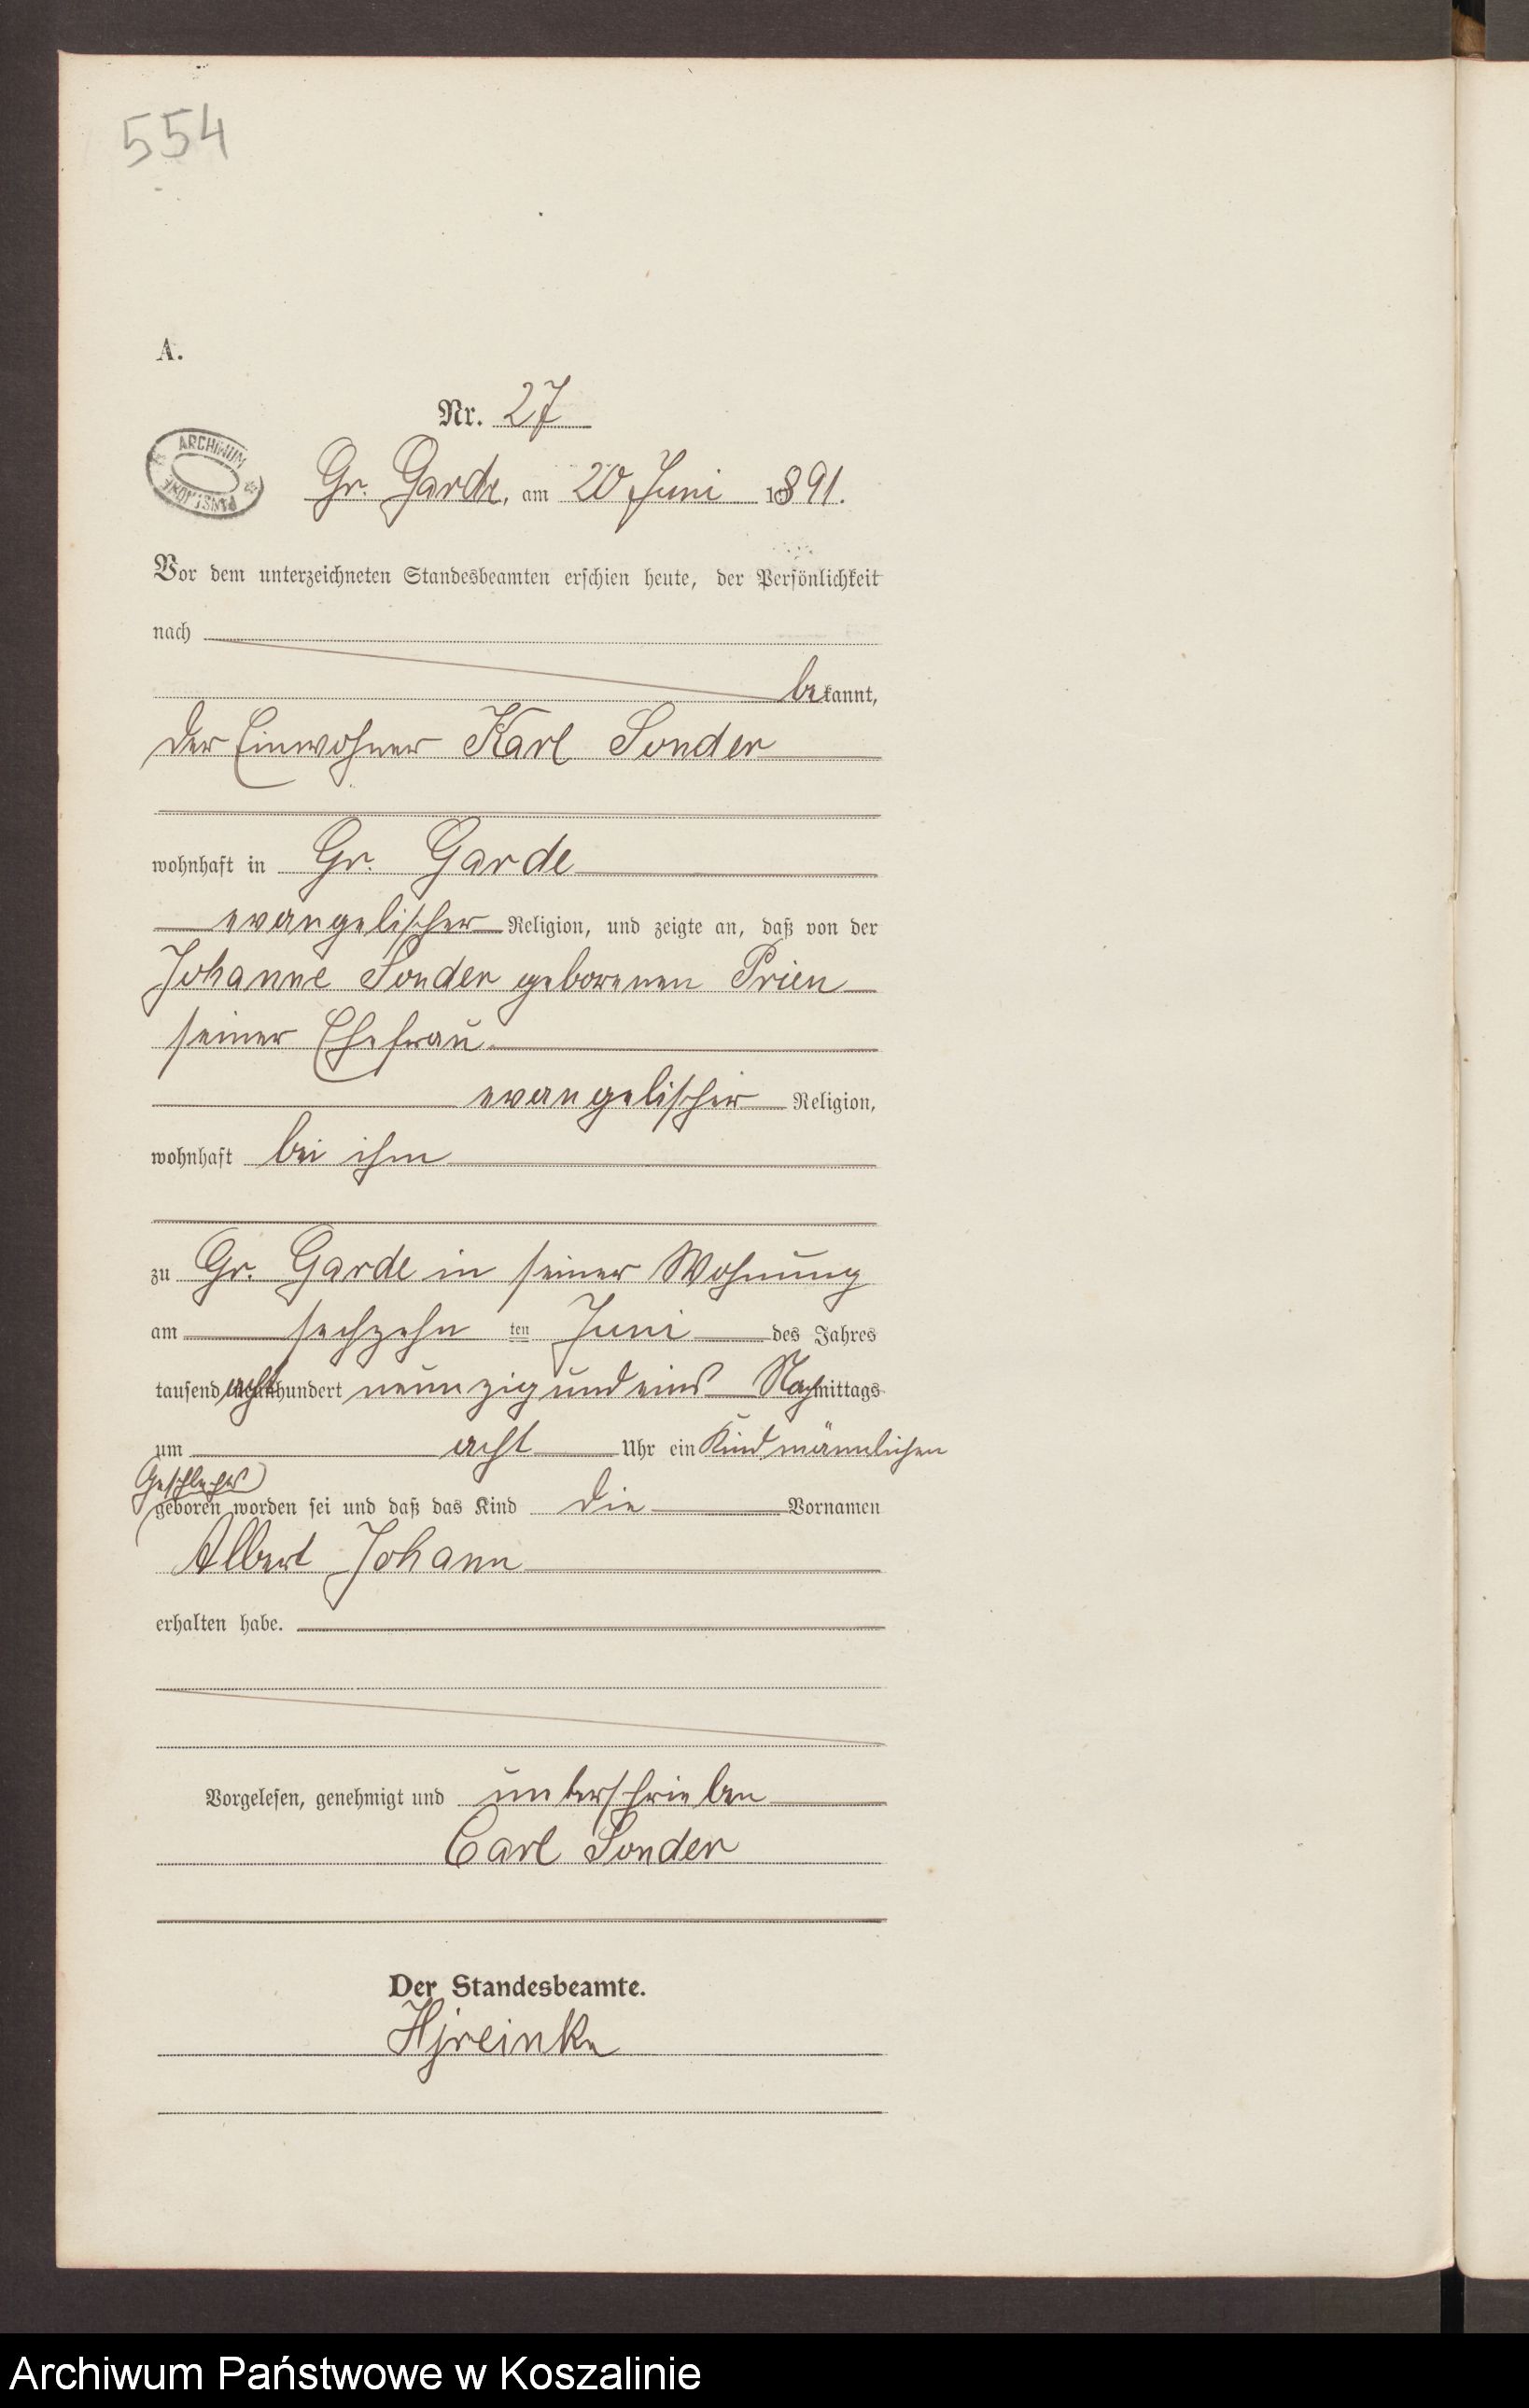 554
A.
Nr. 27
ARCHIWUM PAŃSTWOWE
Gr. Garde, am 20 Juni 1891.
Vor dem unterzeichneten Standesbeamten erschien heute, der Persönlichkeit
nach
bekannt,
der Einwohner Karl Sonder
wohnhaft in Gr. Garde
evangelischer Religion, und zeigte an, daß von der
Johanne Sonder geborenen Prien
seiner Ehefrau
evangelischer Religion,
wohnhaft bei ihm
zu Gr. Garde in seiner Wohnung
am sechzehn ten Juni des Jahres
tausend achthundert neunzig und eins Nachmittags
um acht Uhr ein Kind männlichen
Geschlechts
geboren worden sei und daß das Kind die Vornamen
Albert Johann
erhalten habe.
Vorgelesen, genehmigt und unterschrieben
Carl Sonder
Der Standesbeamte.
Archiwum Państwowe w Koszalinie